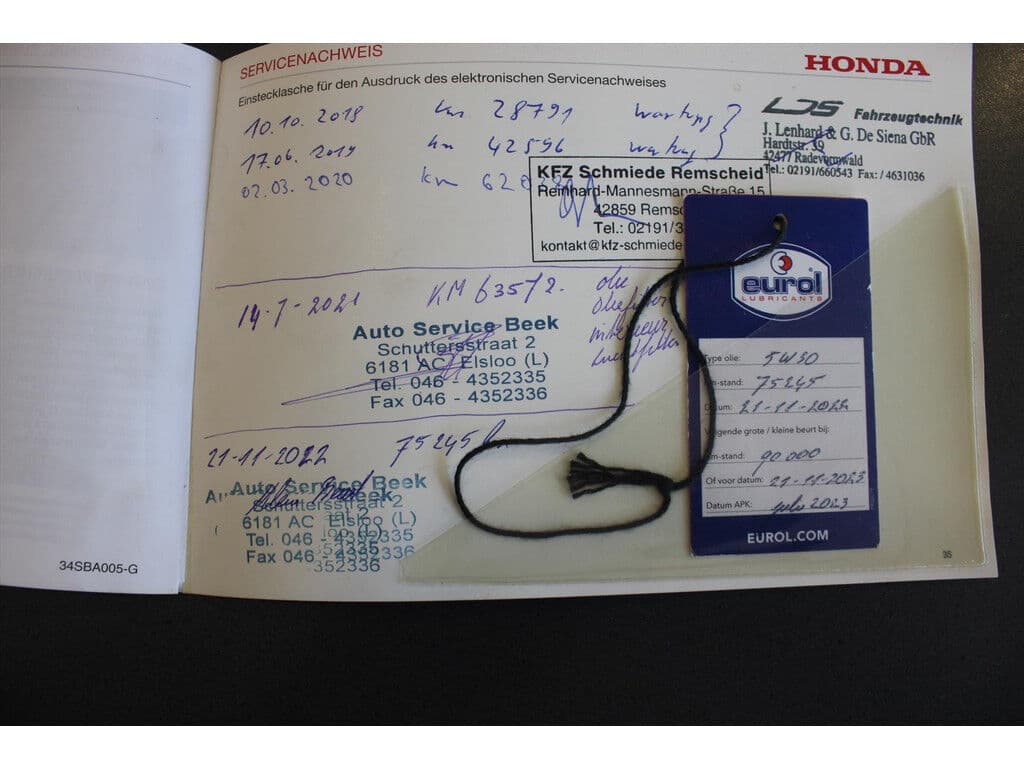 SERVICENACHWEIS
HONDA
Einstecklasche für den Ausdruck des elektronischen Servicenachweises
10.10.2018 km 28791 Wartung
17.06.2019 km 42596 Wartung
02.03.2020 km
LDS Fahrzeugtechnik
J. Lenhard & G. De Siena GbR
Hardtstr. 39
42477 Radevormwald
Tel.: 02191/660543 Fax: / 4631036
KFZ Schmiede Remscheid
Reinhard-Mannesmann-Straße 15
42859
Tel.: 02191/3
14-7-2021 KM 63572.
olie
Oliefilter
interieur
Luchtfilter
Auto Service Beek
Schuttersstraat 2
6181 AC Elsloo (L)
Tel. 046 - 4352335
Fax 046 - 4352336
21-11-2022 75245
Auto Service Beek
Schuttersstraat 2
6181 AC Elsloo (L)
Tel. 046 - 4352335
Fax 046 - 4352336
352336
eurol
LUBRICANTS
Type olie: 5W30
75245
21-11-2022
Volgende grote / kleine beurt bij:
90 000
Of voor datum: 21-11-2023
Datum APK: 2023
EUROL.COM
35
34SBA005-G